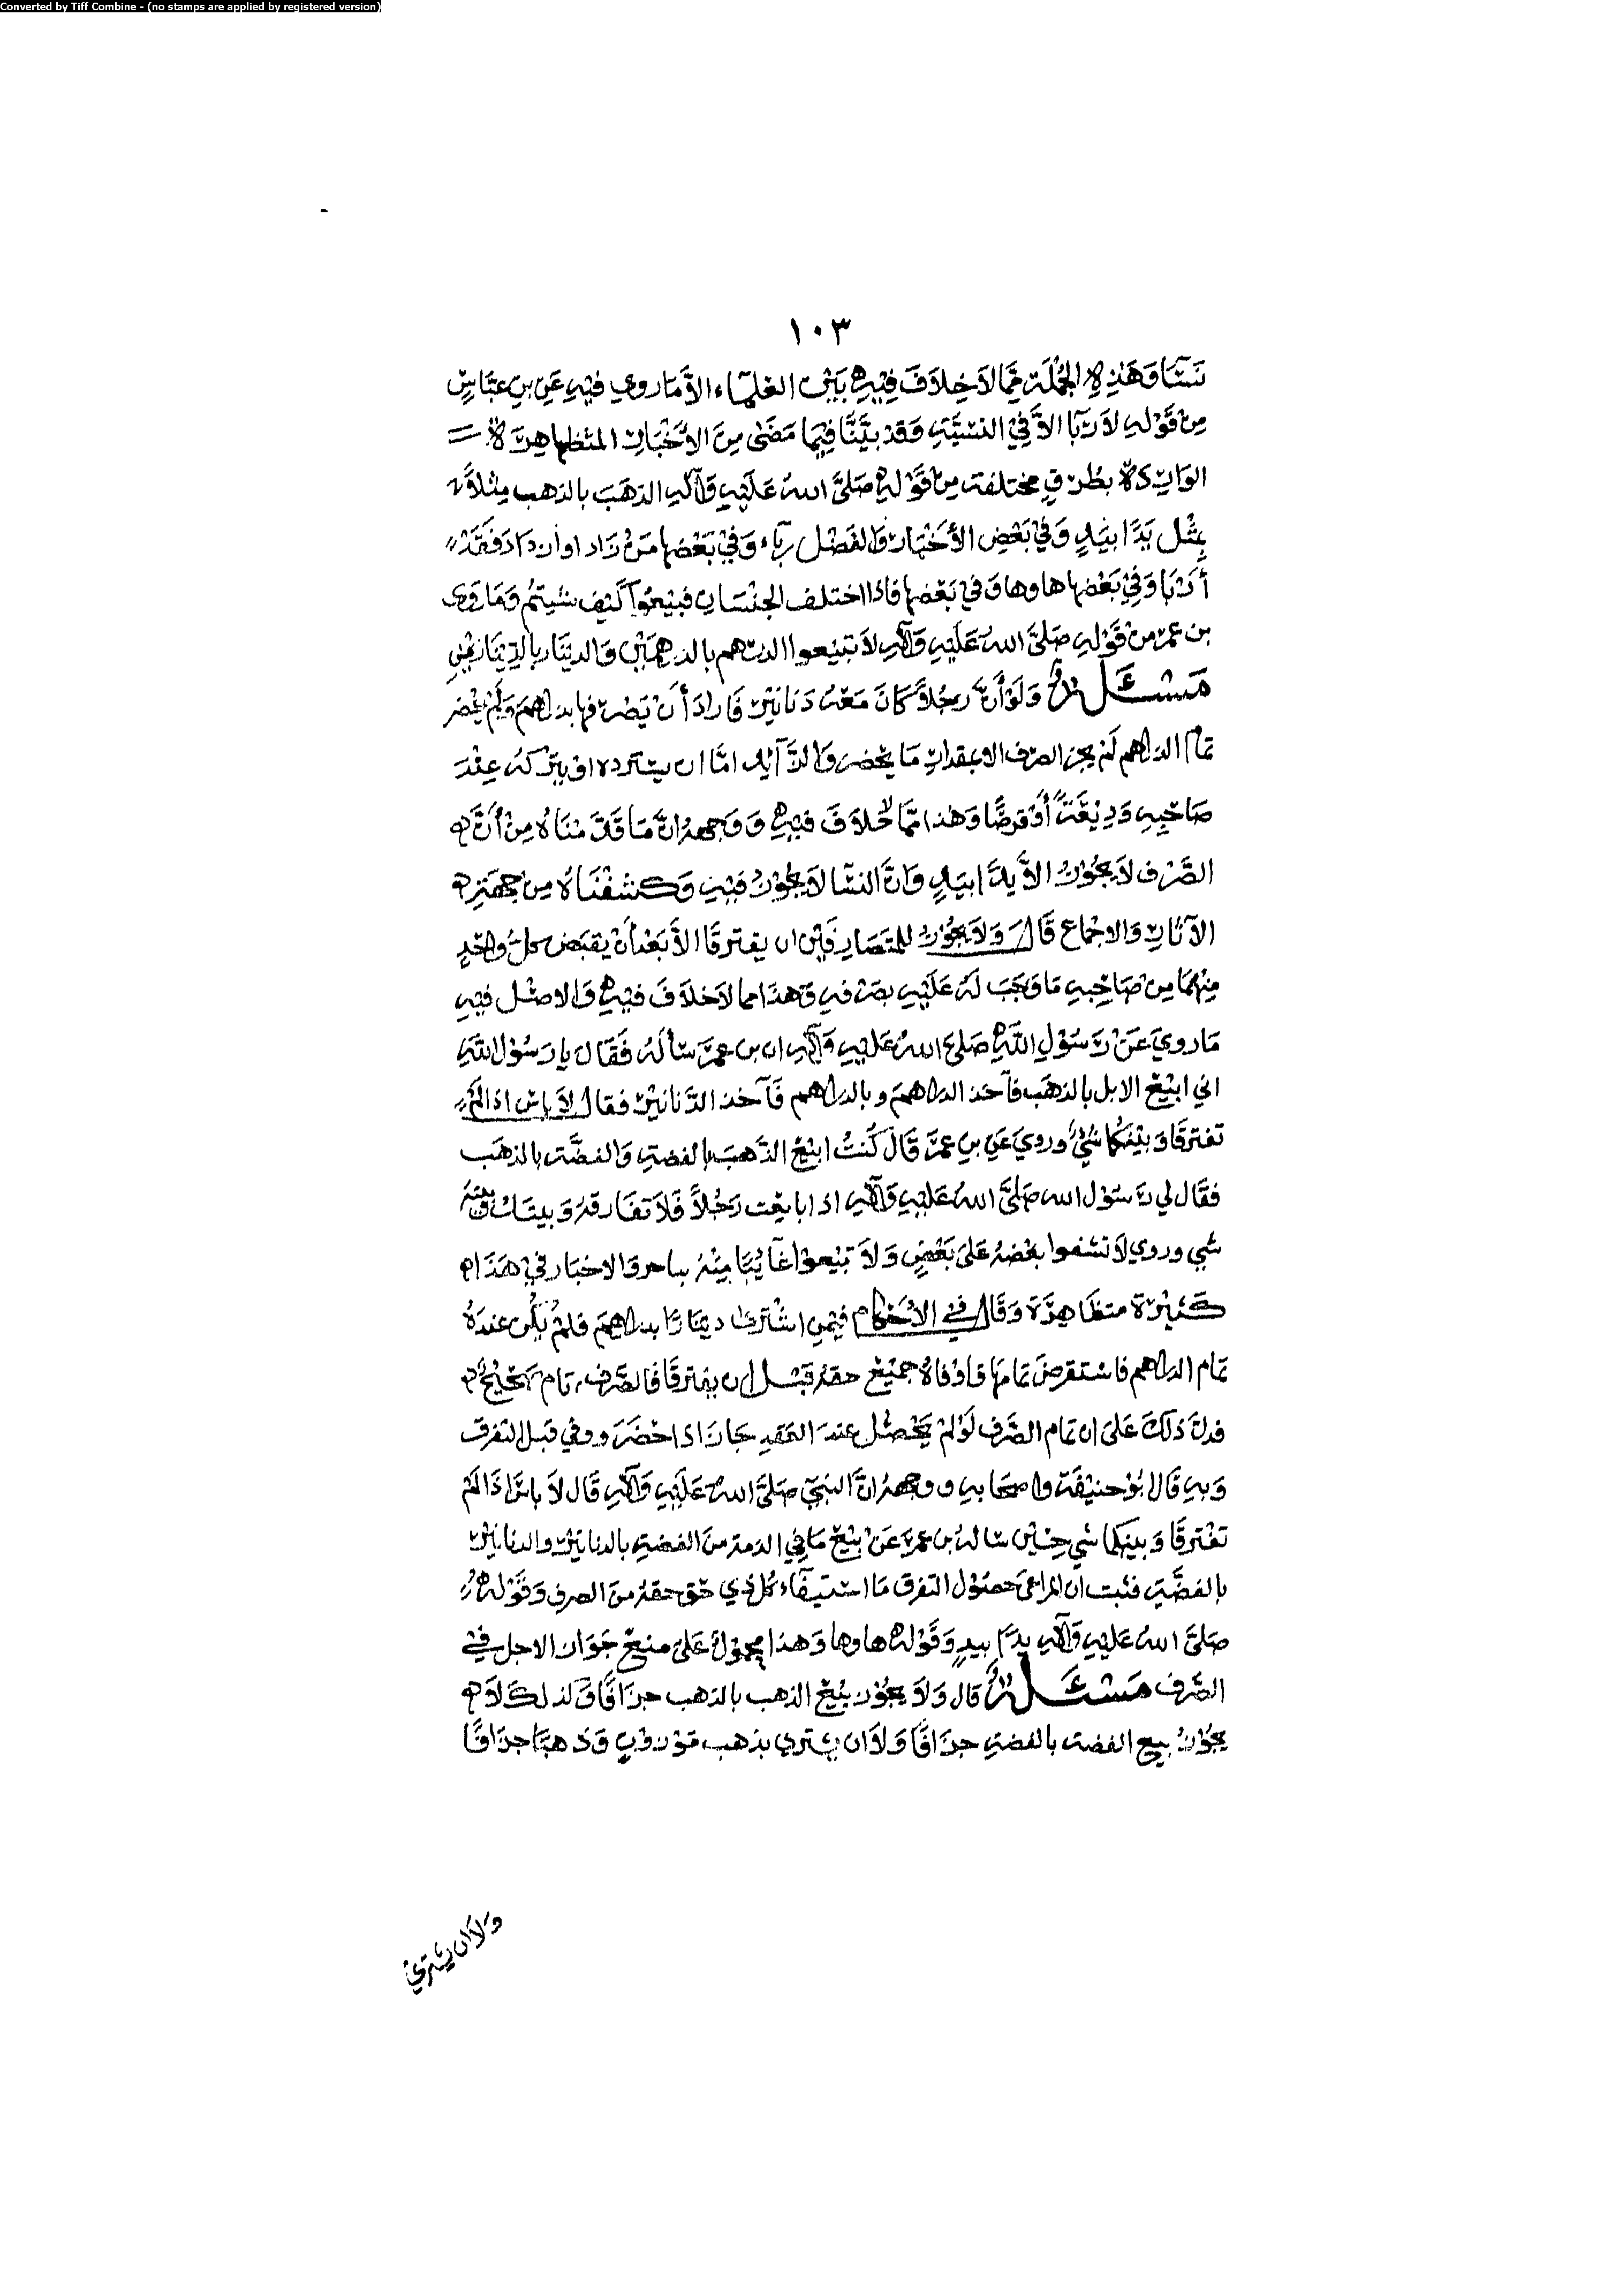 Converted by Tiff Combine - (no stamps are applied by registered version)
١٠٣
نسَّا وَهَذِهِ الجُمْلَة مِمَّا لاَ خِلاَفَ فِيْهِ بَيْنَ العُلمَآء الاَّ مَا روي فيْهِ عَنِ بنِ عبَّاسٍ
مِنْ قَوْلِهِ لاَ رِبَا الاَّ فِي النسيَّةِ وَقَدْ بيَّنَّا فِيْمَا مَضَى مِنَ الأَخْبَارِ المتَظاهِرَة
الوَارِدَة بطُرقٍ مختلفة مِنْ قَوْلِهِ صَلَّى اللهُ عَلَيْهِ وَآلِهِ الذهَبَ بالذهب مِثْلاً
بِمِثْل يَدًا بيَدٍ وَفِيْ بَعْضِ الأَخْبَار وَالفَضْل رِبَاء وَفِيْ بَعْضهَا مَنْ زَاد اوازدَادَ فَقَدْ
أرْبَا وَفِيْ بَعْضهَا هَا وهَا وَفي بَعْضهَا فَاذَا اختلف الجنْسَانِ فَبِيْعُوْا كَيْفَ شيتُم وَمَا رَوَى
بن عمر مِنْ قَوْلِهِ صَلَّى اللهُ عَلَيْهِ وَآلِهِ لاَ تبيْعوا الدرهم بالدرهمَيْن وَالدينَار بالدينَارَيْنِ
مَسْئَلة وَلَوْ أنَّ رَجُلاً كَانَ مَعَهُ دَنَانِيْرَ فَارَادَ أنْ يَصْرفهَا بدرَاهمَ وَلَمْ يحْضر
تمَام الدراهم لَمْ يجز الصرْف الا بمقدَار مَا يحْضر وَالزَّآئِد امَّا ان يسْتَرده اوْ يتْركهُ عِنْدَ
صَاحِبِهِ وَدِيْعَةً أوْ قرضًا وَهذا مِمَّا لاَ خلاَفَ فيْهِ وَوَجههُ انَّ مَا قَدَّمْنَاهُ مِنْ أنَّ
الصَّرْف لاَ يجُوْزُ الاَّ يدًا بيَدٍ وَانَّ النسَّا لاَ يجُوْزُ فيْهِ وَكشفْنَاهُ مِنْ جهَةِ
الآثَارِ وَالاجْمَاع قَالَ وَلاَ يجُوْزُ للمُتَصَارِفَيْن ان يفترقَا الاَّ بَعْدَ أنْ يقبَض كلُّ وَاحِدٍ
مِنْهُمَا مِنْ صَاحِبِهِ مَا وَجَبَ لَهُ عَلَيْهِ بصَرْفِهِ وَهَذا مما لاَ خلاَفَ فيْهِ وَالاصْل فيْهِ
مَا رويَ عَنْ رَسُوْلِ اللَّهِ صَلىَّ اللهُ عَليْهِ وَآلِهِ ان بن عمرَ سَألَهُ فَقَال يا رَسُوْل اللَّهِ
اني ابيْعُ الابل بالذهَب فآخذ الدراهمَ وبالدراهم فَآخذ الدَّنَانيْرَ فقال لاَ باس اذا لمْ
تفترقَا وَبيْنَكمَا شَيْءٌ وروِيَ عَنِ بنِ عمرَ قَالَ كُنْتُ ابيْعُ الذَّهبَ بالفضةِ وَالفضَّة بالذهَب
فقَال لي رَسُوْل الله صَلَّى اللهُ عَليْهِ وَآلِهِ اذا بايعْت رَجُلاً فَلاَ تفَارقهُ وَبينَك وَبيْنَهُ
شي وروي لاَ تشفوا بعْضهُ عَلىَ بَعْضٍ وَلاَ تبيْعوْا غَآيِبًا مِنْهُ بناجز وَالاخبَار فيْ هَذَا
كَثيْرَة متظَاهِرَة وَقَالَ في الأَحْكَام فيْمَنِ اشْتَرى دينَارًا بدرَاهِمَ فلمْ يَكُن عندَهُ
تمَام الدراهم فاسْتقرضَ تمَامهَا فَاوْفاهُ جميْعَ حقهُ قبْل ان يفترقَا فَالصَّرْف تَام صَحِيْحٌ
فدلَّ ذَلكَ عَلىَ ان تمَام الصَّرف لَوْ لمْ يَحْصُل عندَ العَقدِ جَازَ اذا حْضَرَ ووفي قبل التفرق
وَبهِ قَالَ بُوْ حنيْفَة وَاصحَابه وَوجههُ انَّ النبيَّ صَلَّى اللهُ عَلَيْهِ وَآلِهِ قَال لاَ باسَ اذَا لَمْ
تفْترقَا وَبينكمَا شي حِيْن سَالهُ بن عمرَ عَنْ بيْعِ مَا في الذمة منَ الفضةِ بالدنانيْر وَالدنانيْر
بالفضَّةِ فثبت ان المرَاعى حصُوْل التفرق مَا اسْتيفَاء كل ذي حَق حقهُ منَ الصرف وَقَوْله
صَلىَّ اللهُ عَليْهِ وَآلِهِ يدًا بيدٍ وَقَوْله هَا وهَا وَهَذا محمُوْلٌ عَلىَ منعِ جَوَاز الاجل فيْ
الصَّرف مَسْئَلة قَال وَلاَ يجُوْز بيْعُ الذهب بالذهب جزَافًا وَكذلكَ لاَ
يجُوْزُ بيع الفضة بالفضةِ جزَافًا وَلاَ ان يشتري بذهب مَوْزوْنٍ وَذهبًا جزَافًا
وَلاَ ان يشتري